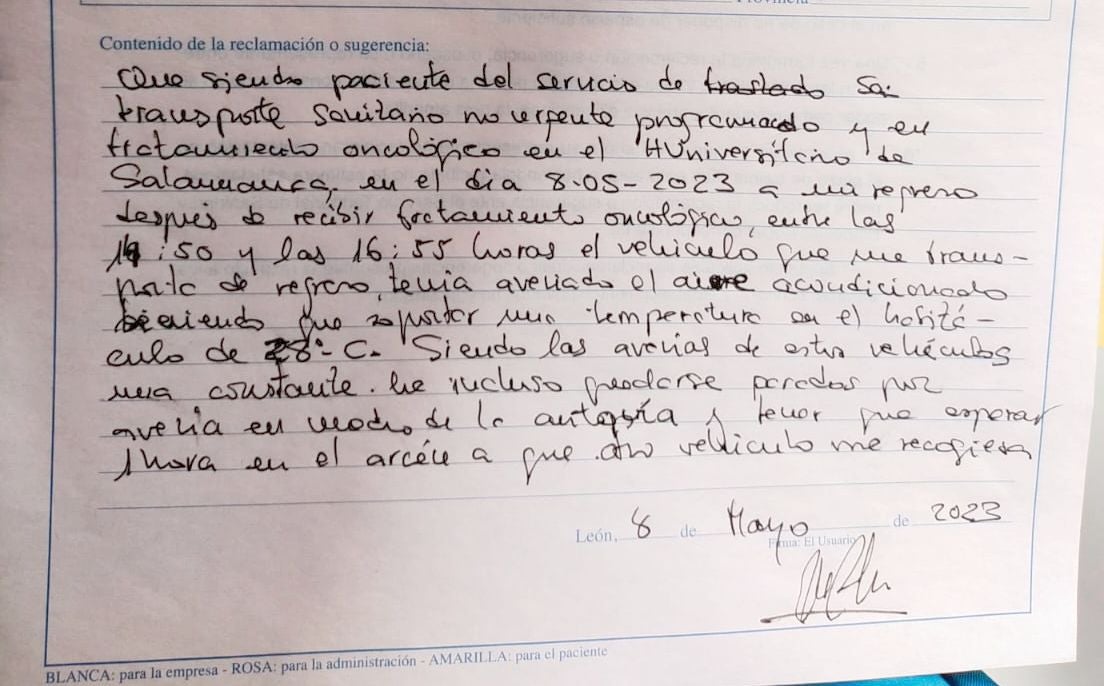 Contenido de la reclamación o sugerencia:
Que siendo paciente del servicio de traslado Sa:
transporte Sanitario no urgente programado y en
tratamiento oncológico en el HUniversitario de
Salamanca, en el dia 8-05-2023 a mi regreso
despues de recibir tratamiento oncológico, entre las
:50 y las 16:55 horas el vehiculo que me trans-
porta de regreso, tenia averiado el aire acondicionado
teniendo que soportar una temperatura en el habitá-
culo de 28º C. Siendo las averias de estos vehículos
una constante. he incluso quedarse parados por
averia en medio de la autovía y tener que esperar
1 hora en el arcén a que otro vehiculo me recogiera
León, 8 de Mayo de 2023
Firma: El Usuario
BLANCA: para la empresa - ROSA: para la administración - AMARILLA: para el paciente